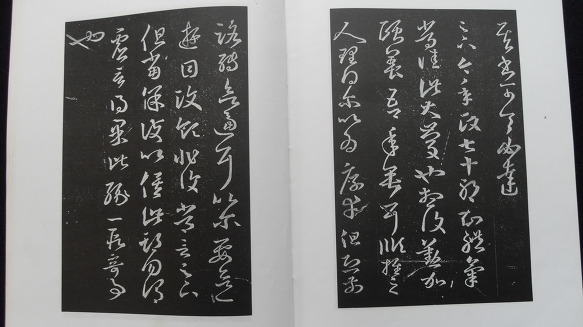 其书可令必達
足下今年政七十耶知體氣
常佳此大慶也想復勤加
頤養吾年垂耳順推之
人理得爾以為厚幸但恐前
路轉欲逼耳以爾要欲一
遊目汶領非復常言足下
但當保護以俟此期勿謂
虛言得果此緣一段奇事
也